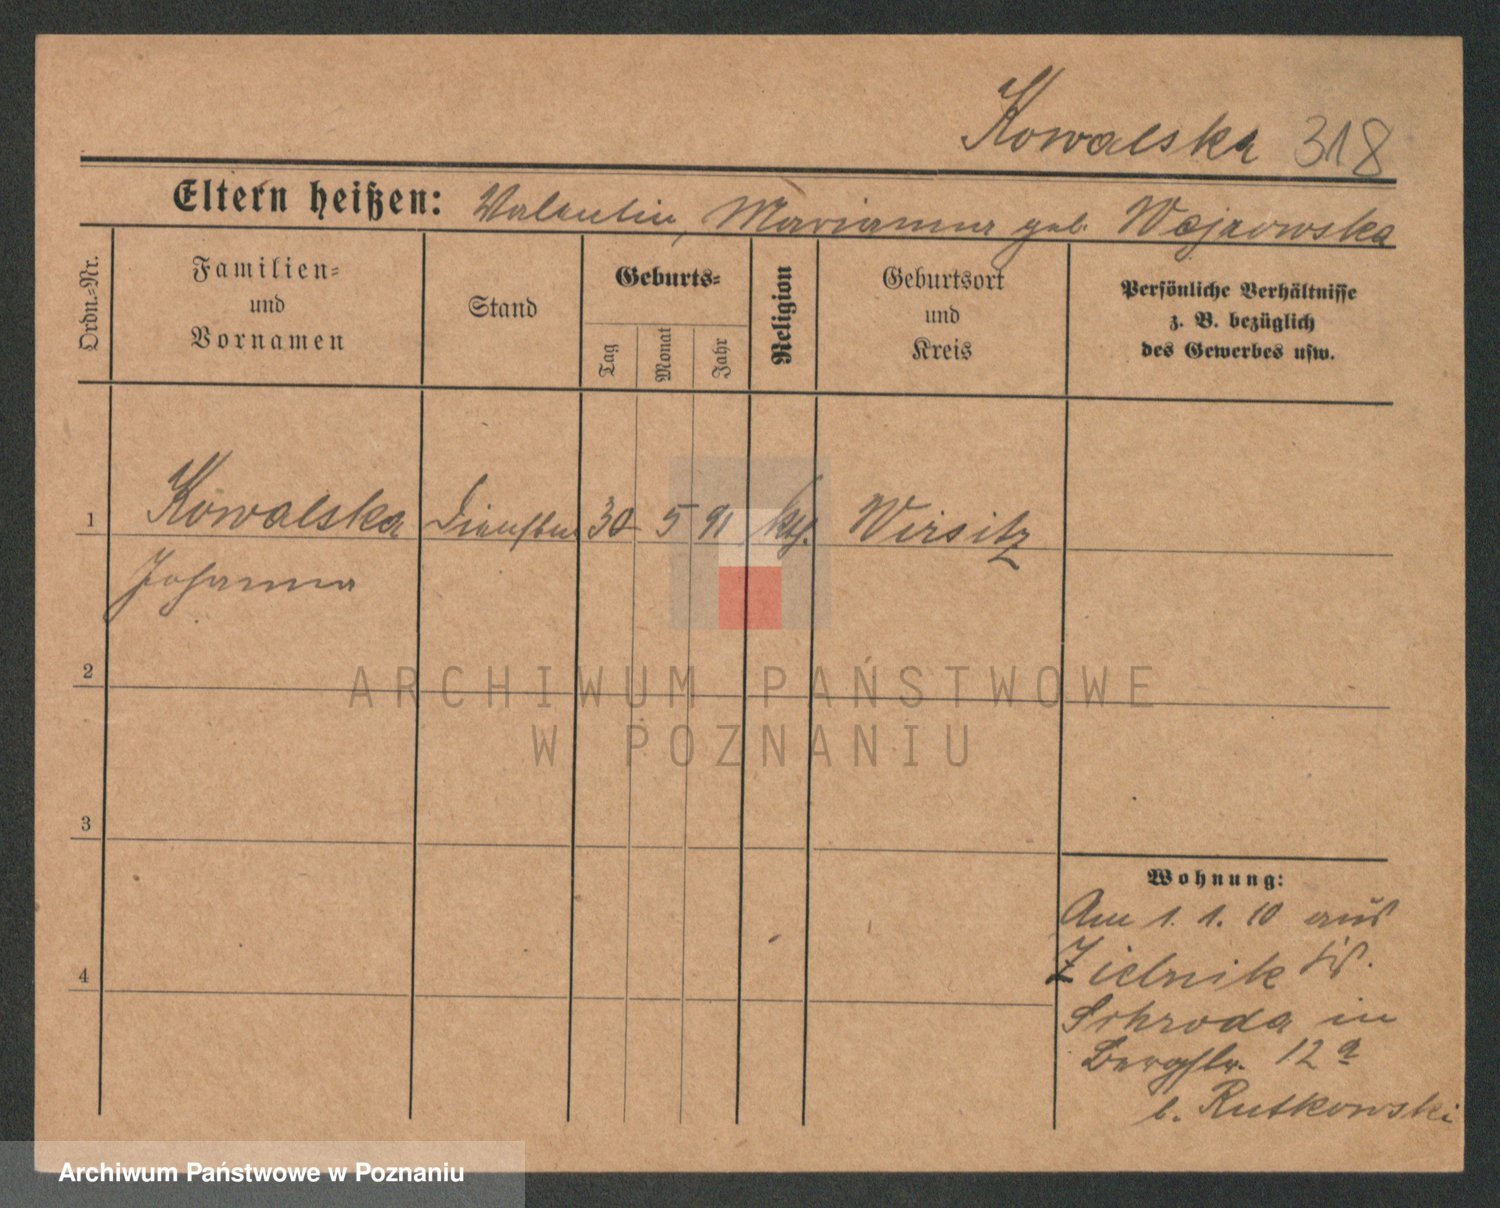 Kowalska 318
Eltern heißen: Valentin, Marianna geb. Wojrowska
Ordn.-Nr.
Familien-
und
Vornamen
Stand
Geburts-
Tag
Monat
Jahr
Religion
Geburtsort
und
Kreis
Persönliche Verhältnisse
z. B. bezüglich
des Gewerbes usw.
1 Kowalska 30 5 91 kth. Wirsitz
Johanna
2
3
4
Wohnung:
Am 1. 1. 10 aus
Zielnik
Schroda in
Bergstr. 12a
b. Rutkowski
ARCHIWUM PAŃSTWOWE
W POZNANIU
Archiwum Państwowe w Poznaniu